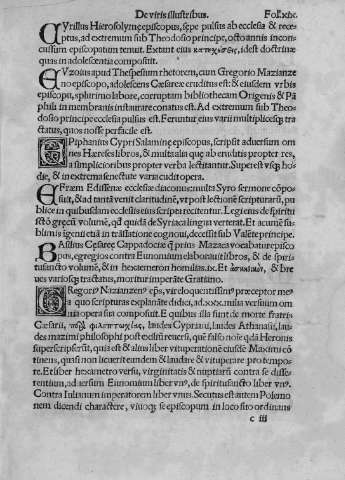 De viris illustribus. Fol.xlix.
CYrillus Hierosolymę episcopus, sępe pulsus ab ecclesa & rece
ptus, ad extremum sub Theodosio principe, octo annis incon
cussum episcopatum tenuit. Extant eius κατηχήσεις, idest doctrinæ
quas in adolescentia composuit.
EVzoius apud Thespesium rhetorem, cum Gregorio Mazianze
no episcopo, adolescens Cæsareæ eruditus est: & eiusdem vrbis
episcopus, plurimo labore, corruptam bibliothecam Origenis & Pā
phili in membranis instaurare conatus est. Ad extremum sub Theo
dosio principe ecclesia pulsus est. Feruntur eius varii multiplicesq; tra
ctatus, quos nosse perfacile est.
EPiphanius Cypri Salaminę episcopus, scripsit aduersum om
nes Hæreses libros, & multa alia quę ab eruditis propter res,
a simplicioribus propter verba lectitantur. Superest vsq; ho
die, & in extrema senectute varia cudit opera.
EFræm Edissenæ ecclesiæ diaconus: multa Syro sermone cōpo
suit, & ad tantā venit claritudinē, vt post lectionē scripturarū, pu
blice in quibusdam ecclesiis eius scripta recitentur. Legi eius de spiritu
sctō gręcū volumē, qđ quidā de Syriaca lingua verterat. Et acumē su
blimis igenii etiā in trāslatione cognoui, decessit sub Valēte principe.
BAsilius Cęsareę Cappadociæ q̄ prius Mazaca vocabatur episco
pus, egregios contra Eunomium elaborauit libros, & de spiritu
sancto volumē, & in hexæmeron homilias .ix. Et ἀσκητικὸν, & bre
ues variosq; tractatus, moritur imperāte Gratiano.
GRegori⁹ Nazanzen⁹ ep̄s, vir eloquentissim⁹ præceptor me⁹
quo scripturas explanāte didici, ad .xxx. milia versuum om
nia opera sua composuit. E quibus illa sunt de morte fratris
Cæsarii, περὶ φιλοπτωχίας, laudes Cypriani, laudes Athanasii, lau
des maximi philosophi post exiliū reuersi, quē falso noīe qđā Heronis
superscripserūt, quia est & alius liber vituperationē eiusdē Maximi cō
tinens, quasi non licuerit eundem & laudare & vituperare pro tempo
re. Et liber hexametro versu, virginitatis & nuptiarū contra se disse⸗
rentium, aduersum Eunomium liber vn⁹, de spiritu sancto liber vn⁹.
Contra Iulianum imperatorem liber vnus. Secutus est autem Polemo
nem dicendi charactere, viuoq; se episcopum in loco suo ordinans
c iii